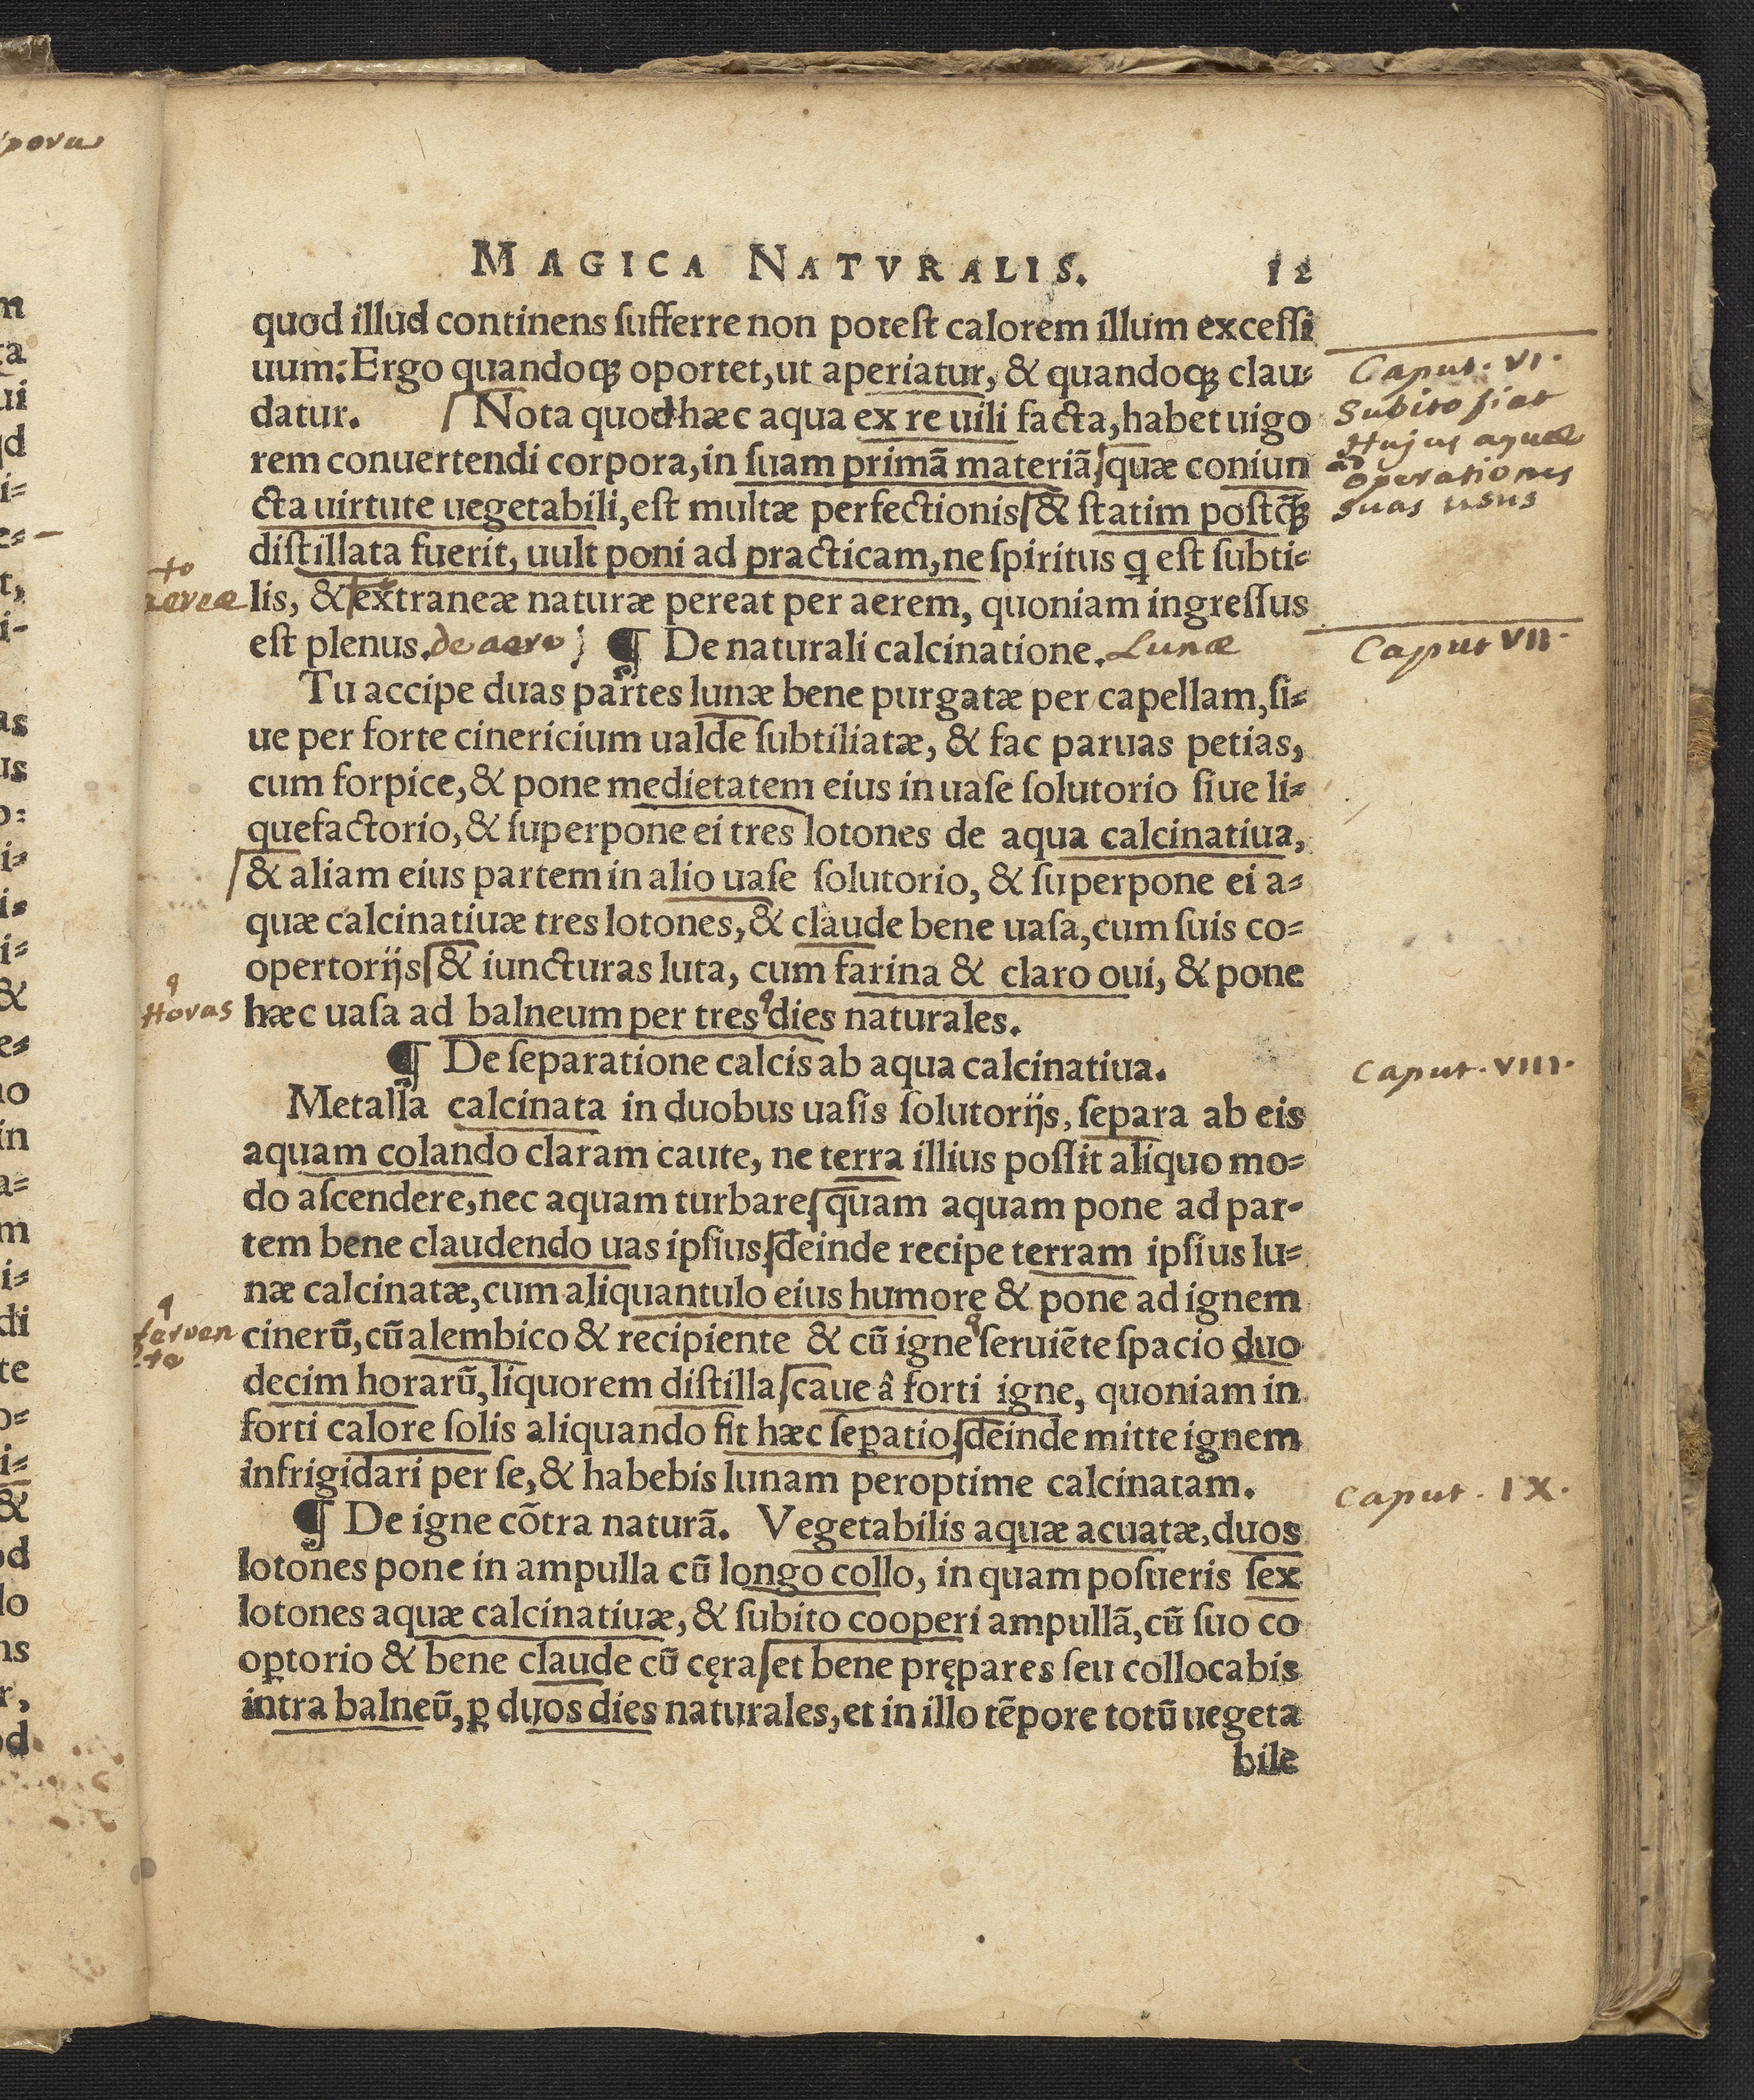 MAGICA NATVRALIS. 12
quod illud continens sufferre non potest calorem illum excessi
uum: Ergo quandoq; oportet, ut aperiatur, & quandoq; clau-
datur. Nota quod hæc aqua ex re uili facta, habet uigo
rem conuertendi corpora, in suam primã materiã, quæ coniun
cta uirtute uegetabili, est multæ perfectionis & statim postq̃;
distillata fuerit, uult poni ad practicam, ne spiritus q est subti-
lis, & extraneæ naturæ pereat per aerem, quoniam ingressus
est plenus. de aere ¶ De naturali calcinatione. Lunæ
Tu accipe duas partes lunæ bene purgatæ per capellam, si-
ue per forte cinericium ualde subtiliatæ, & fac paruas petias,
cum forpice, & pone medietatem eius in uase solutorio siue li-
quefactorio, & superpone ei tres lotones de aqua calcinatiua,
& aliam eius partem in alio uase solutorio, & superpone ei a-
quæ calcinatiuæ tres lotones, & claude bene uasa, cum suis co-
opertorijs & iuncturas luta, cum farina & claro oui, & pone
hæc uasa ad balneum per tres dies naturales.
¶ De separatione calcis ab aqua calcinatiua.
Metalla calcinata in duobus uasis solutorijs, separa ab eis
aquam colando claram caute, ne terra illius possit aliquo mo-
do ascendere, nec aquam turbare, quam aquam pone ad par-
tem bene claudendo uas ipsius, deinde recipe terram ipsius lu-
næ calcinatæ, cum aliquantulo eius humore & pone ad ignem
cinerũ, cũ alembico & recipiente & cũ igne seruiẽte spacio duo
decim horarũ, liquorem distilla, caue â forti igne, quoniam in
forti calore solis aliquando fit hæc sep̱atio, deinde mitte ignem
infrigidari per se, & habebis lunam peroptime calcinatam.
¶ De igne cõtra naturã. Vegetabilis aquæ acuatæ, duos
lotones pone in ampulla cũ longo collo, in quam posueris sex
lotones aquæ calcinatiuæ, & subito cooperi ampullã, cũ suo co
op̱torio & bene claude cũ cęra, et bene prępares seu collocabis
intra balneũ, p̱ duos dies naturales, et in illo tẽpore totũ uegeta
bile
Caput. VI.
Subito fiat
Hujus aquæ
ad
operationes
suas usus
Caput VII.
Caput. VIII.
Caput. IX.
to
aereæ
q
Horas
q
ferven
te